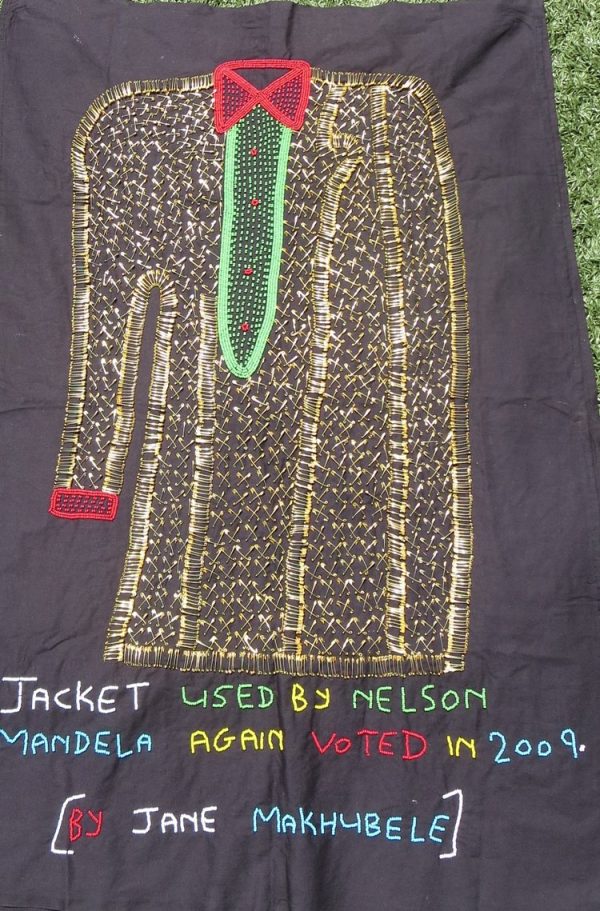 JACKET USED BY NELSON
MANDELA AGAIN VOTED IN 2009.
[BY JANE MAKHUBELE]